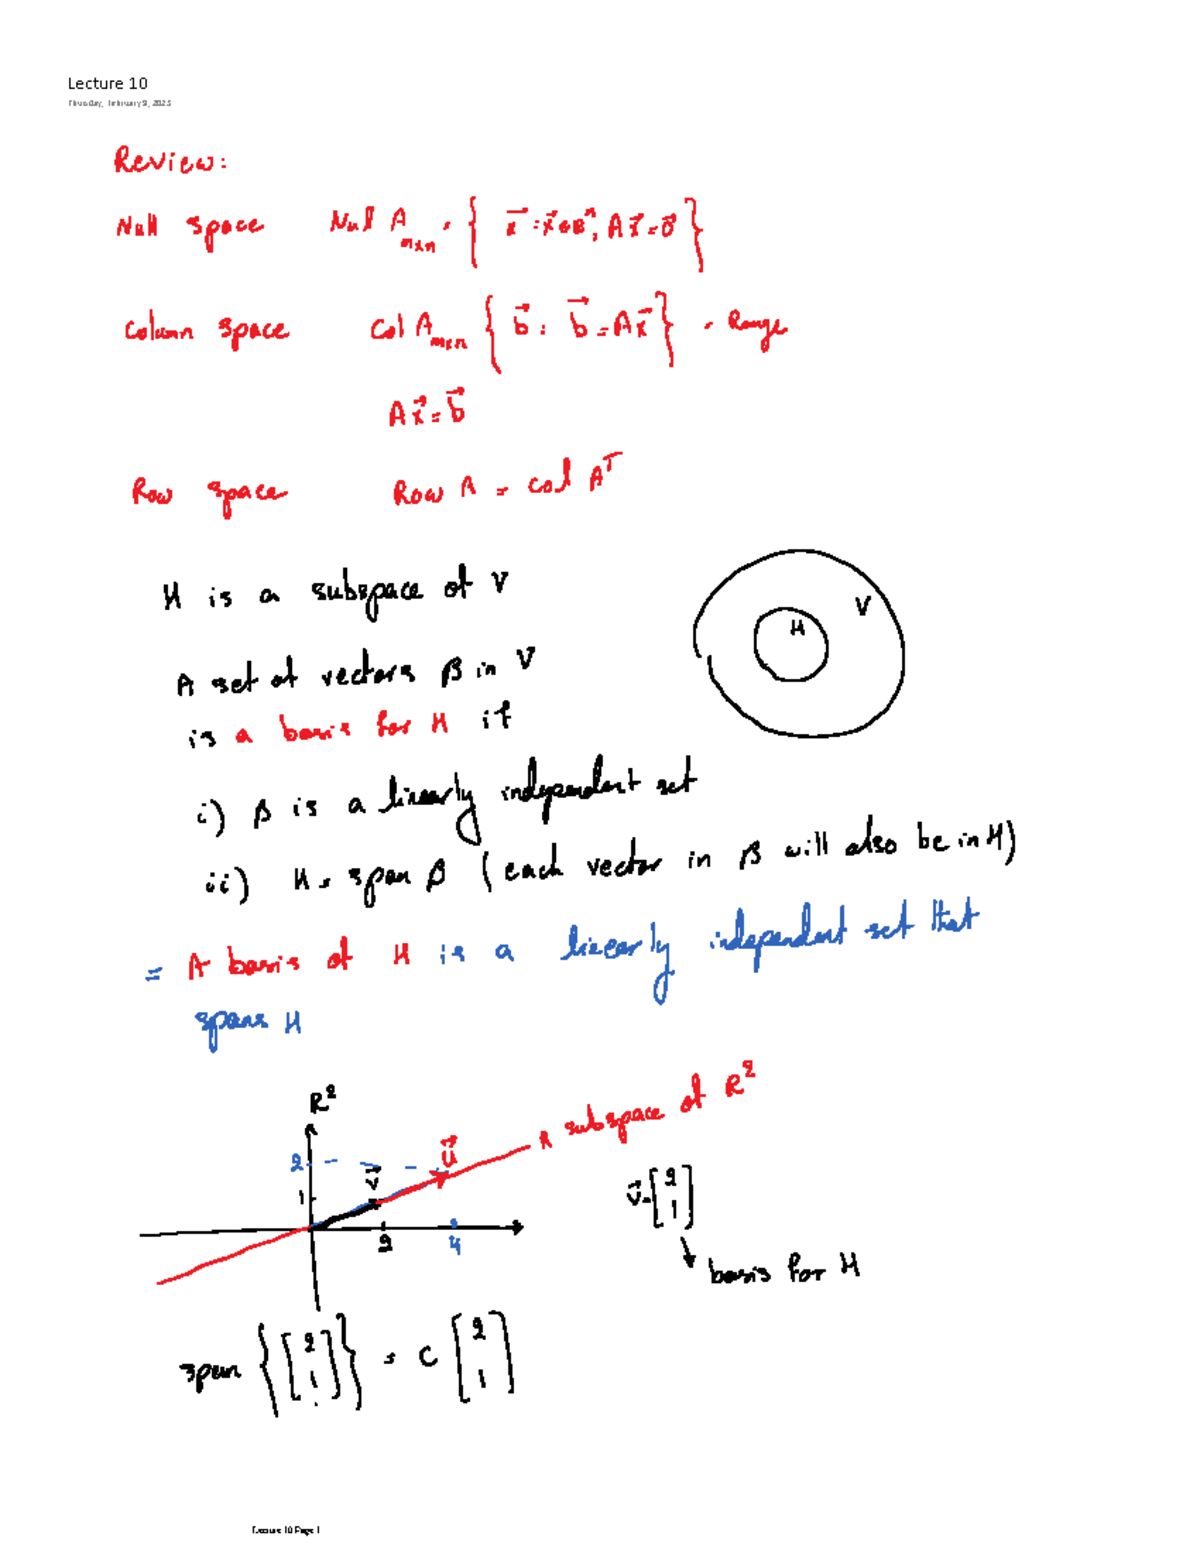 Lecture 10
Thursday, February 9, 2023
Review:
Null space Nul A m×n = { x⃗ : x⃗ ∈ R^n, A x⃗ = 0⃗ }
Column space Col A m×n { b⃗ : b⃗ = A x⃗ } = Range
A x⃗ = b⃗
Row space Row A = Col A^T
H is a subspace of V
V
H
A set of vectors β in V
is a basis for H if
i) β is a linearly independent set
ii) H = span β (each vector in β will also be in H)
= A basis of H is a linearly independent set that
spans H
R^2
A subspace of R^2
2
u⃗
v⃗
1
2
4
v⃗ = [2 1]
basis for H
span { [2 1] } = C [2 1]
Lecture 10 Page 1